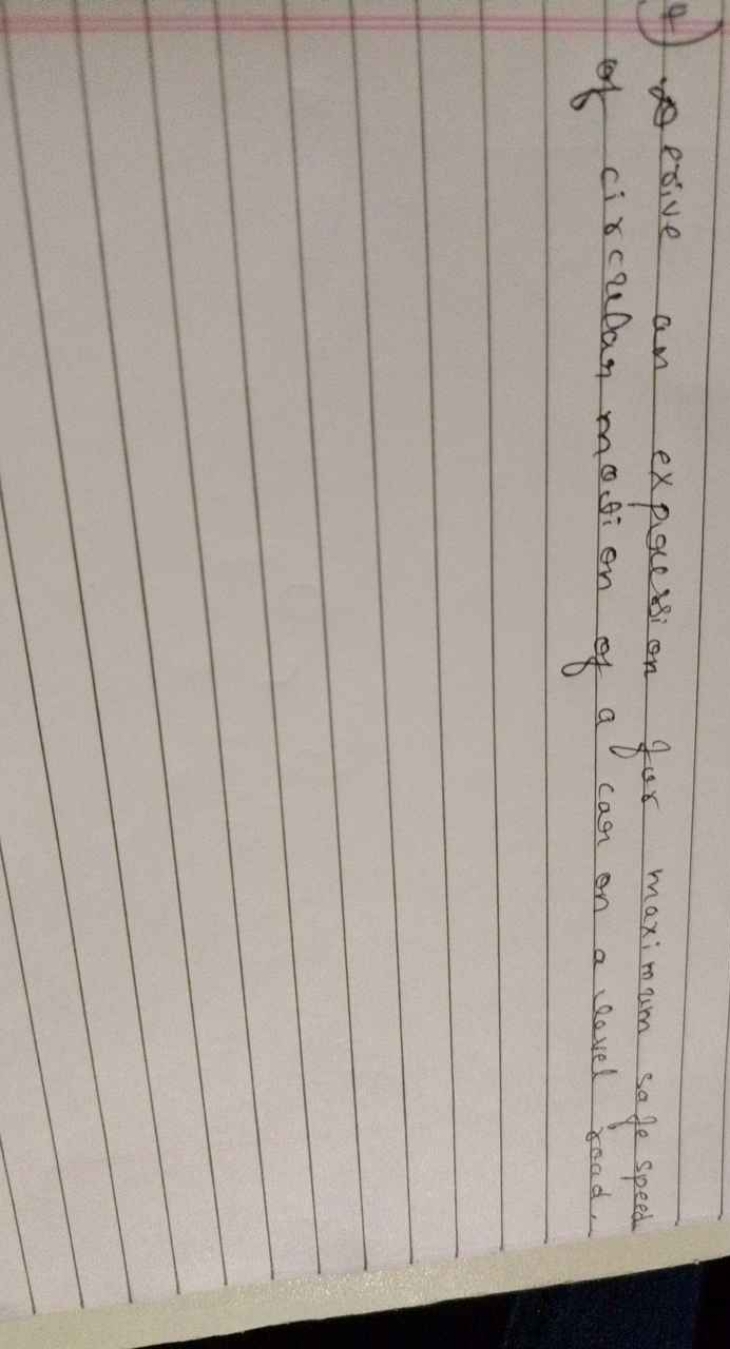 4) Derive an expression for maximum safe speed
of circular motion of a car on a level road.